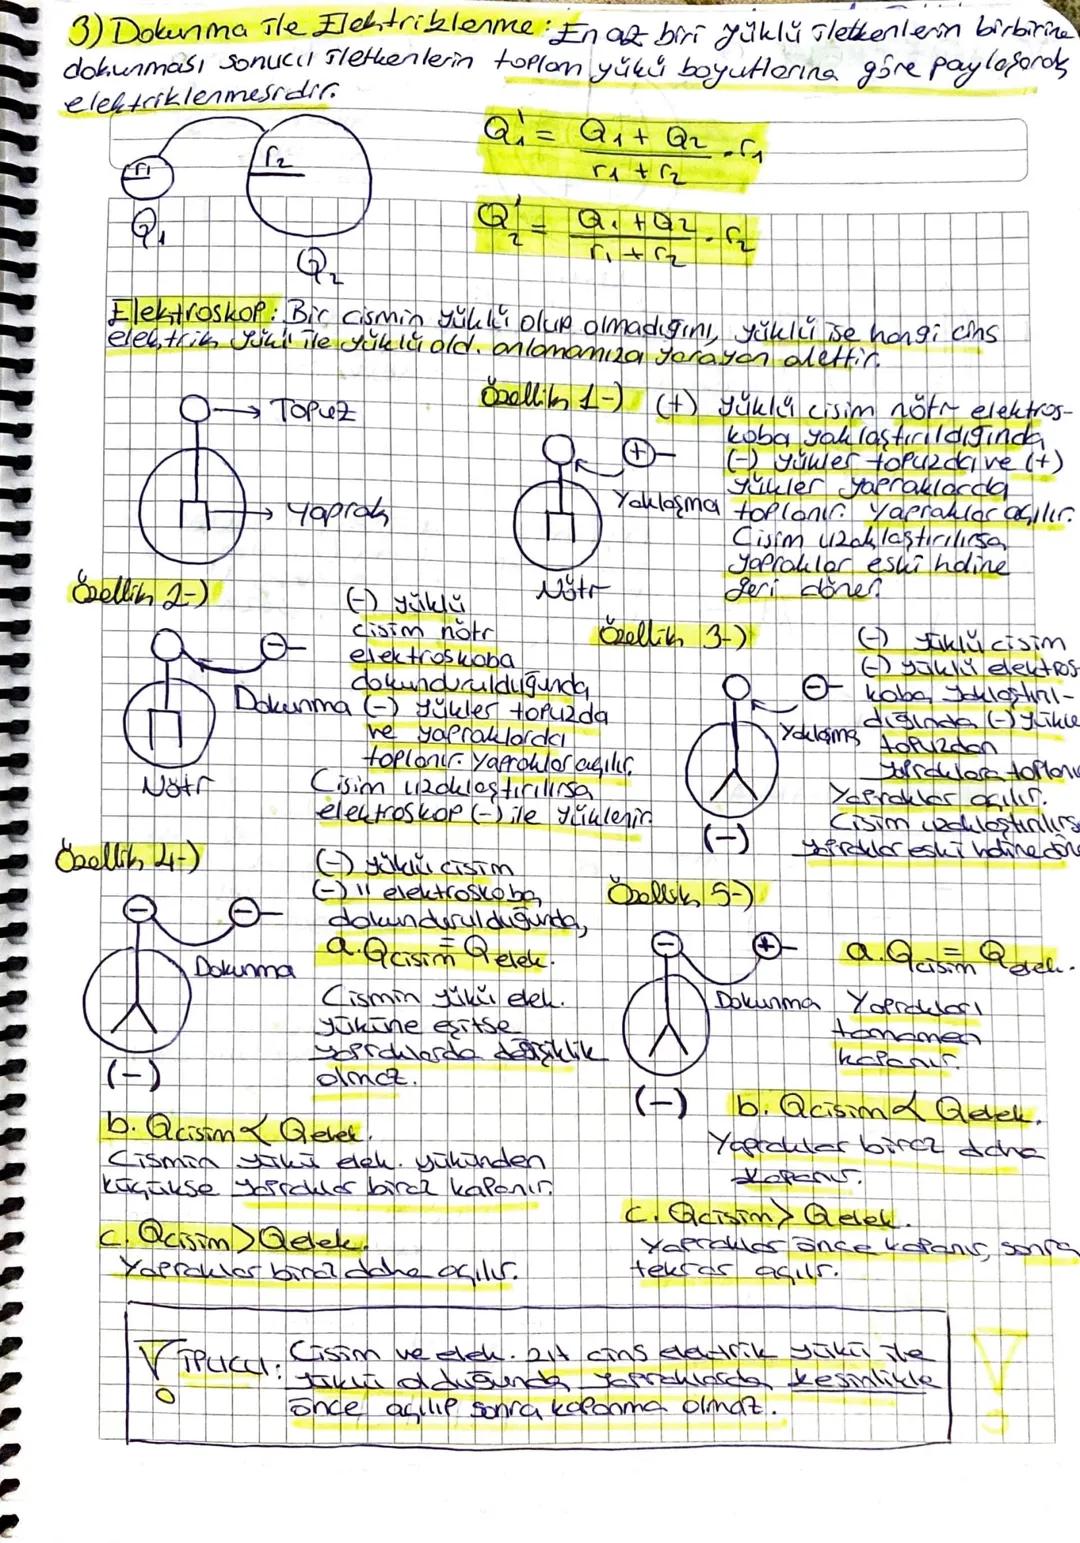 3) Dokunma ile Elektriklenme: En az biri yüklü iletkenlerin birbirine
dokunması sonucu iletkenlerin toplam yükü boyutlarına göre paylaşarak
elektriklenmesidir.
r1
r2
Q1
Q2
Q1' = Q1 + Q2 / r1 + r2 . r1
Q2' = Q1 + Q2 / r1 + r2 . r2
Elektroskop: Bir cismin yüklü olup olmadığını, yüklü ise hangi cins
elektrik yükü ile yüklü old. anlamamıza yarayan alettir.
→ Topuz
→ yaprak
Özellik 1-)
(+) yüklü cisim nötr elektros-
koba yaklaştırıldığında,
(-) yükler topuzda ve (+)
yükler yapraklarda
toplanır. yapraklar açılır.
Cisim uzaklaştırılırsa,
yapraklar eski haline
geri döner.
+
Yaklaşma
Nötr
Özellik 2-)
(-) yüklü
cisim nötr
elektroskoba
dokundurulduğunda
(-) yükler topuzda
ve yapraklarda
toplanır. yapraklar açılır.
Cisim uzaklaştırılırsa
elektroskop (-) ile yüklenir.
-
Dokunma
Nötr
Özellik 3-)
(-) yüklü cisim
(-) yüklü elektros-
koba yaklaştırıl-
dığında (-) yükle
topuzdan
yapraklara toplanı
Yapraklar açılır.
Cisim uzaklaştırılırsa
yapraklar eski haline döne
-
Yaklaşma
(-)
Özellik 4-)
(-) yüklü cisim
(-) " elektroskoba,
dokundurulduğunda,
a. Qcisim = Qelek.
Cismin yükü elek.
yüküne eşitse
yapraklarda değişiklik
olmaz.
-
-
Dokunma
(-)
b. Qcisim < Qelek.
Cismin yükü elek. yükünden
küçükse yapraklar biraz kapanır.
c. Qcisim > Qelek.
Yapraklar biraz daha açılır.
Özellik 5-)
-
+
Dokunma
(-)
a. Qcisim = Qelek.
Yaprakları
tamamen
kapanır.
b. Qcisim < Qelek.
Yapraklar biraz daha
kapanır.
c. Qcisim > Qelek.
Yapraklar önce kapanır, sonra
tekrar açılır.
! İPUCU: Cisim ve elek. zıt cins elektrik yükü ile
yüklü olduğunda yapraklarda kesinlikle
önce açılıp sonra kapanma olmaz.
!